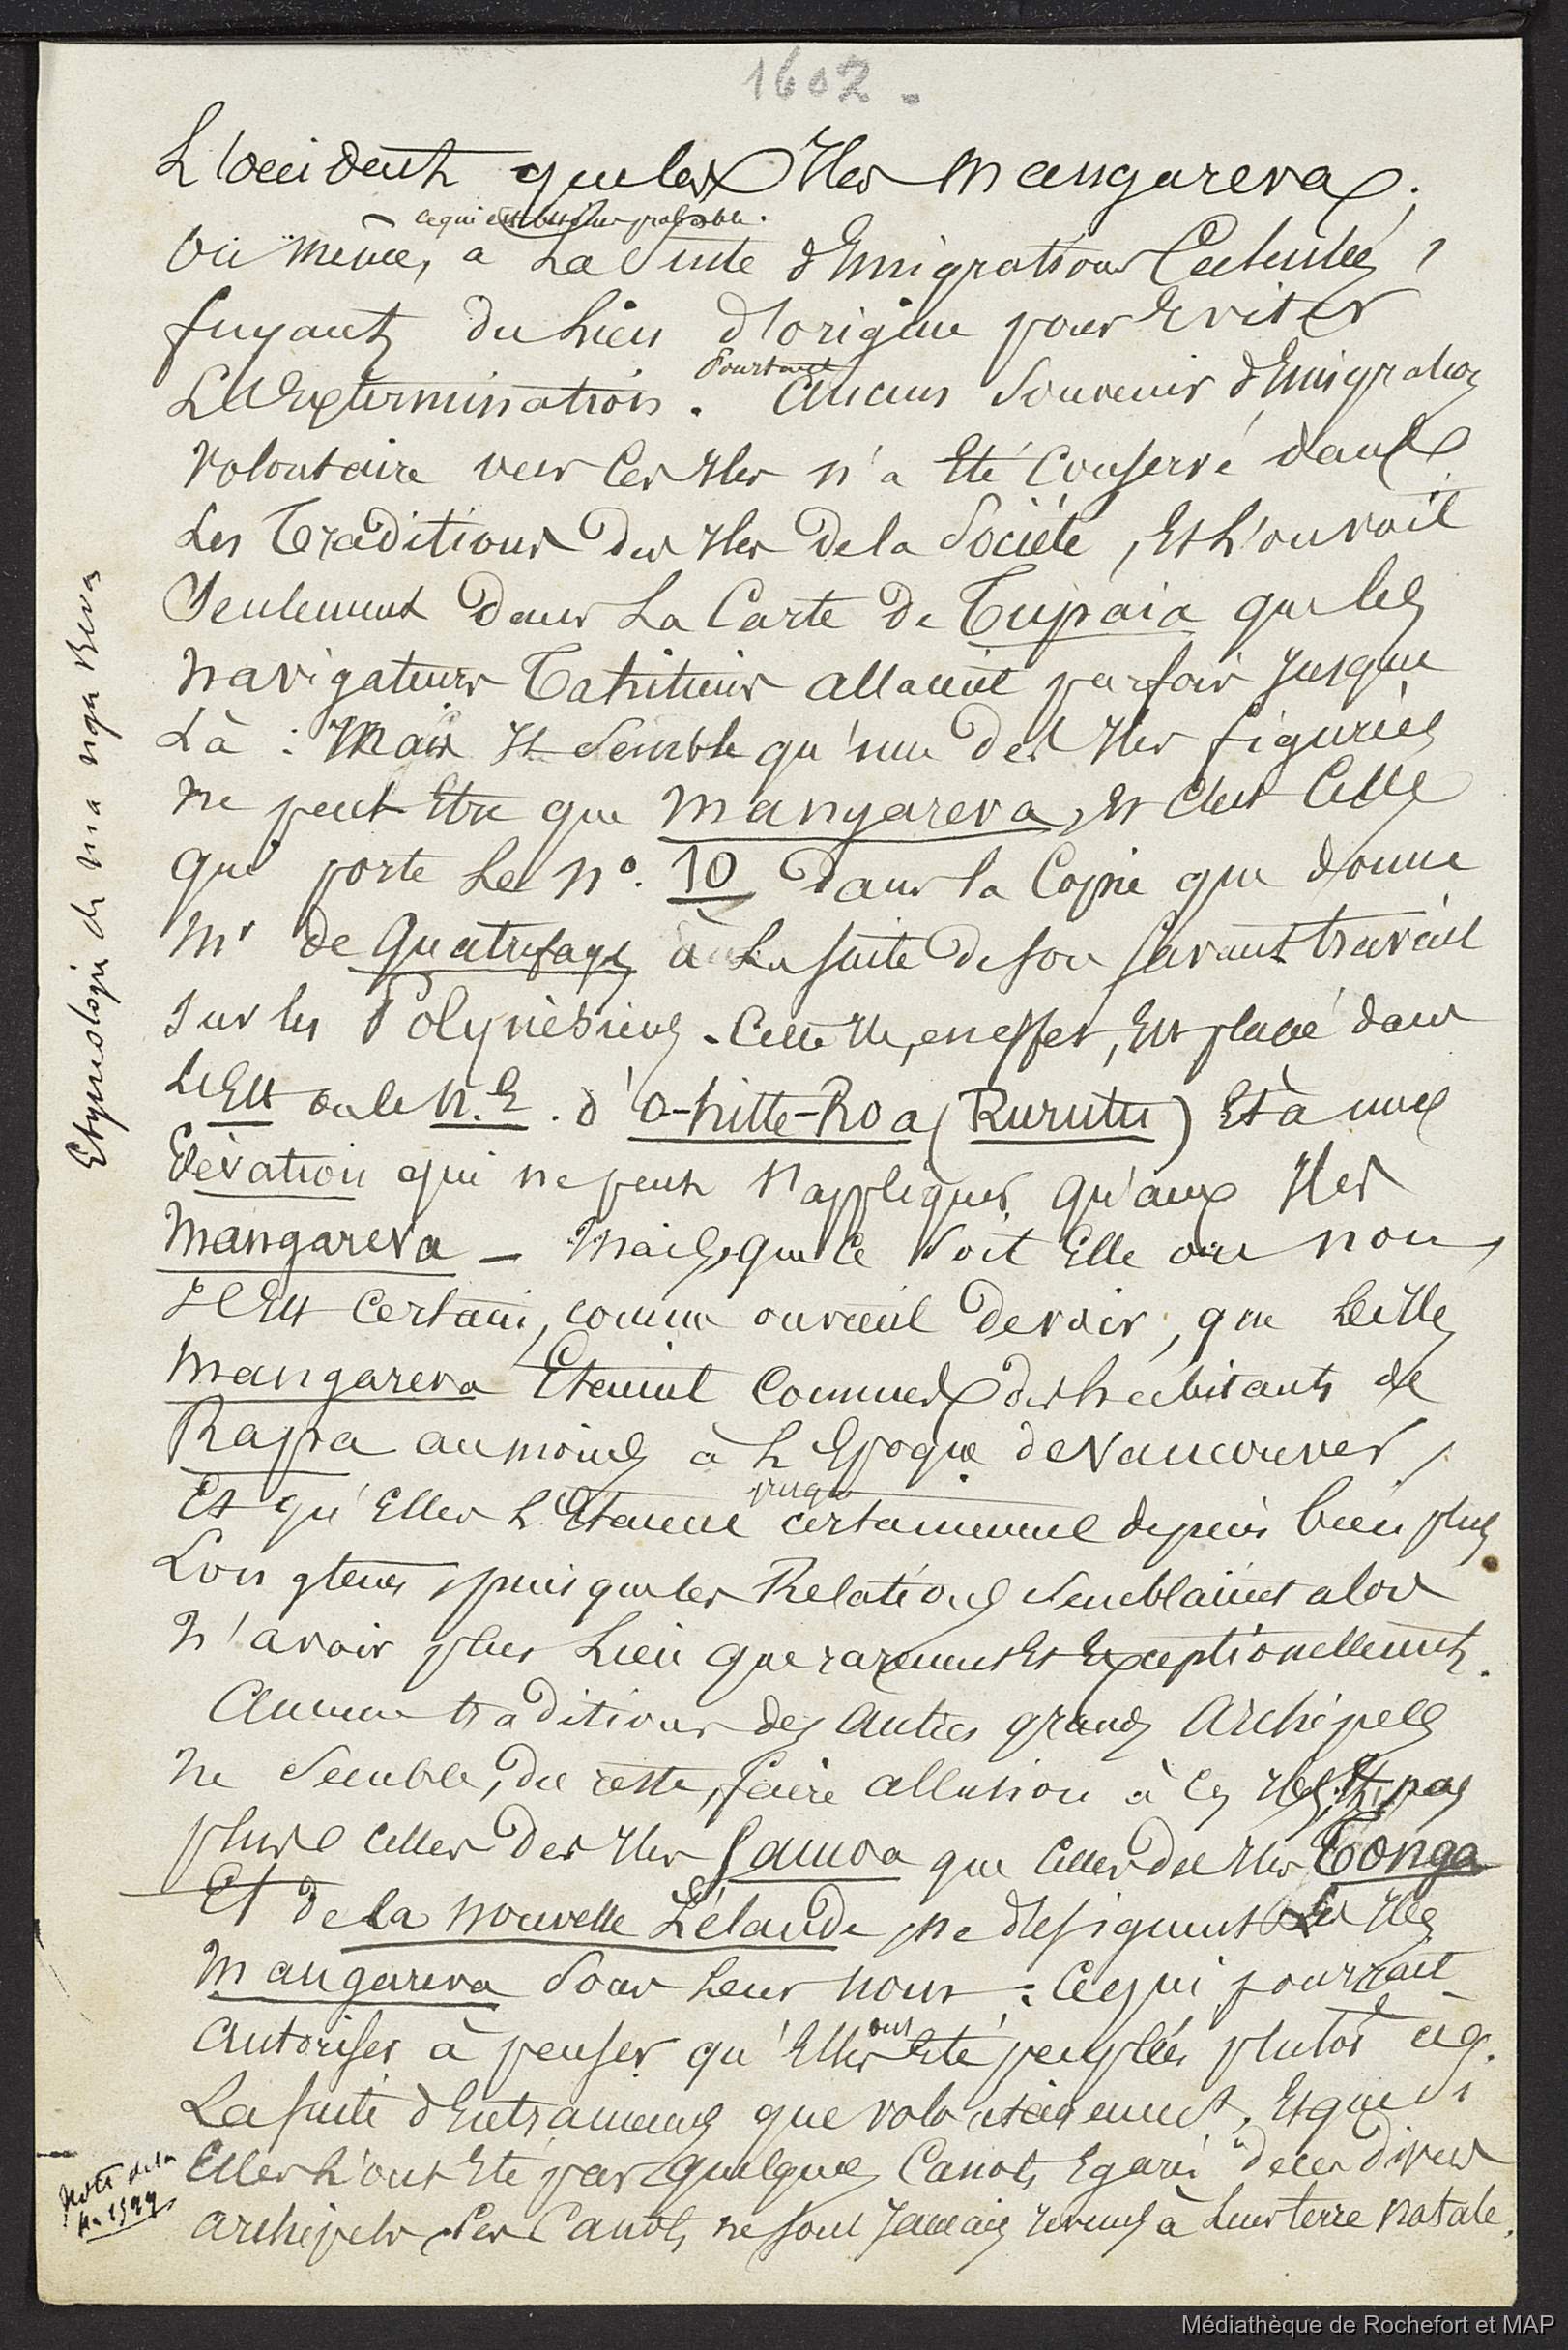 1602 -
L'occident que les Iles Mangareva;
ce qui est bien plus probable.
ou même, à la suite d'Emigrations
fuyant du lieu d'origine pour Eviter
L'Extermination. Pourtant aucun Souvenir d'Emigration
volontaire vers ces Iles n'a Eté Conservé dans
Les Traditions des Iles de la Société, Et l'on voit
Seulement dans La Carte de Tupaia que les
navigateurs Tahitiens allaient parfois Jusque
Là : Mais Il Semble qu'une des Iles figurées
ne peut Etre que Mangareva, Et c'est Celle
qui porte Le No. 10 dans la Copie que donne
Mr de Quatrefages à La suite de son savant travail
sur les Polynésiens. Cette Ile, en effet, Est placé dans
L'Est ou le N.E. d'O-hitte-Roa (Rurutu) Et à une
Elévation qui ne peut s'appliquer qu'aux Iles
Mangareva - Mais, que ce soit Elle ou non,
Il Est Certain, comme on vient de voir, que Les Iles
Mangareva Etaient Connues des habitants de
Rapa au moins à L'Epoque de Vancouver,
Et qu'Elles L'Etaient presque certainement depuis bien plus
Longtems, puisque les Relations Semblaient alors
N'avoir plus Lieu que rarement Et Exceptionellement.
Aucune traditions des autres grands Archipels
ne Semble, du reste, faire allusion à ces Iles; Et pas
plus celles des Iles Samoa que celles des Iles Tonga
Et de la Nouvelle Zélande, ne désignent les Iles
Mangareva Sous Leur nom : Ce qui pourrait
autoriser à penser qu'Elles ont Eté peuplées plutôt à
La suite d'Entrainemens que volontairement, Et que si
Elles L'ont Eté par quelques Canots Egarés de ces divers
archipels, Ces Canots ne sont Jamais revenus à Leur terre natale.
Etymologie de ma nga Reva
Note de la
p. 1599
Médiathèque de Rochefort et MAP